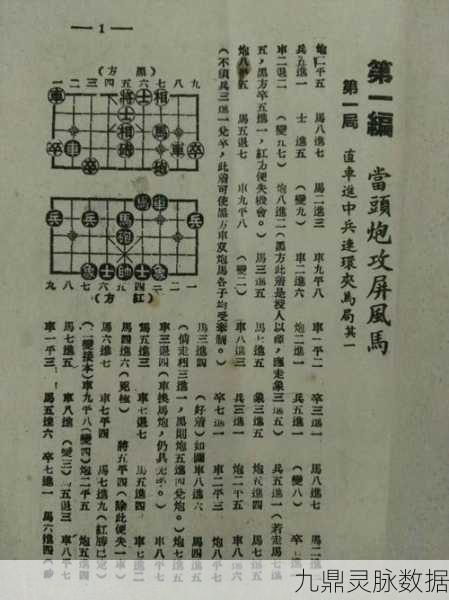 第一編 當頭炮攻屏風馬
第一局 直車進中兵連環夾馬局其一
炮二平五 馬八進七 馬二進三 車九平八 車一平二 卒三進一 馬八進七 馬二進
兵五進一 士 進五 (變九) 車二進六 炮二進一 兵五進一 (變八) 卒
車二退二 (變七) 炮八進二 (黑方此着是授人以隙，應走象三進五。) 兵五進一 (若走馬七
五，黑方卒五進一，紅方便失機會。) 馬三進五 象三進五 炮五進四
炮八平五 馬五退七 車九平八 (變二) 車八進三 兵三進一 炮二平五
(不須兵三進一兌卒，此着可使黑方車双炮馬各子均受牽制。) 卒七進一 車二平三
馬三進四 (好着) 如圖 車八進六 馬四進五
(倘走相三進一，黑則炮五進四兌炮。) 炮五進四
馬五進三 車三退四 (車換馬炮，仍具先手。)
馬四進六 (兇極) 將五平四 (除此便失車)
馬七進五 車七平四 馬七進九 (紅勝定)
(一變接本) 車九平八 (變四) 炮二平五 炮五進四
馬七進五 車八進 (變三) 馬五退三 車八平七
車一平三 馬五進六 卒七進一 馬六進四
—1—
(方黑)
一二三四五六七八九
車 將 士 相
士
相 馬
卒 車 炮 車 卒
卒 炮
馬 車
兵 兵 馬 兵 兵
炮
象 士 帥 士 象
九八七六五四三二一
(方紅)
九鼎灵脉数据